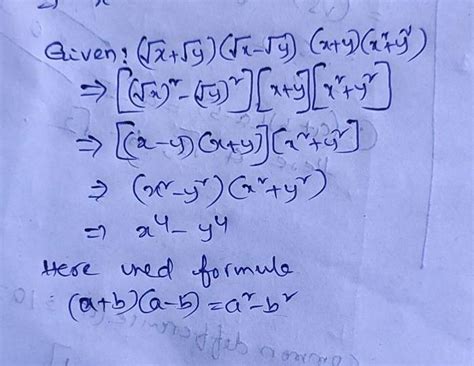 Given: (√x+√y)(√x-√y) (x+y)(x²+y²)
⇒ [(√x)²-(√y)²][x+y][x²+y²]
⇒ [(x-y)(x+y)][x²+y²]
⇒ (x²-y²)(x²+y²)
⇒ x⁴-y⁴
Here used formula
(a+b)(a-b)=a²-b²